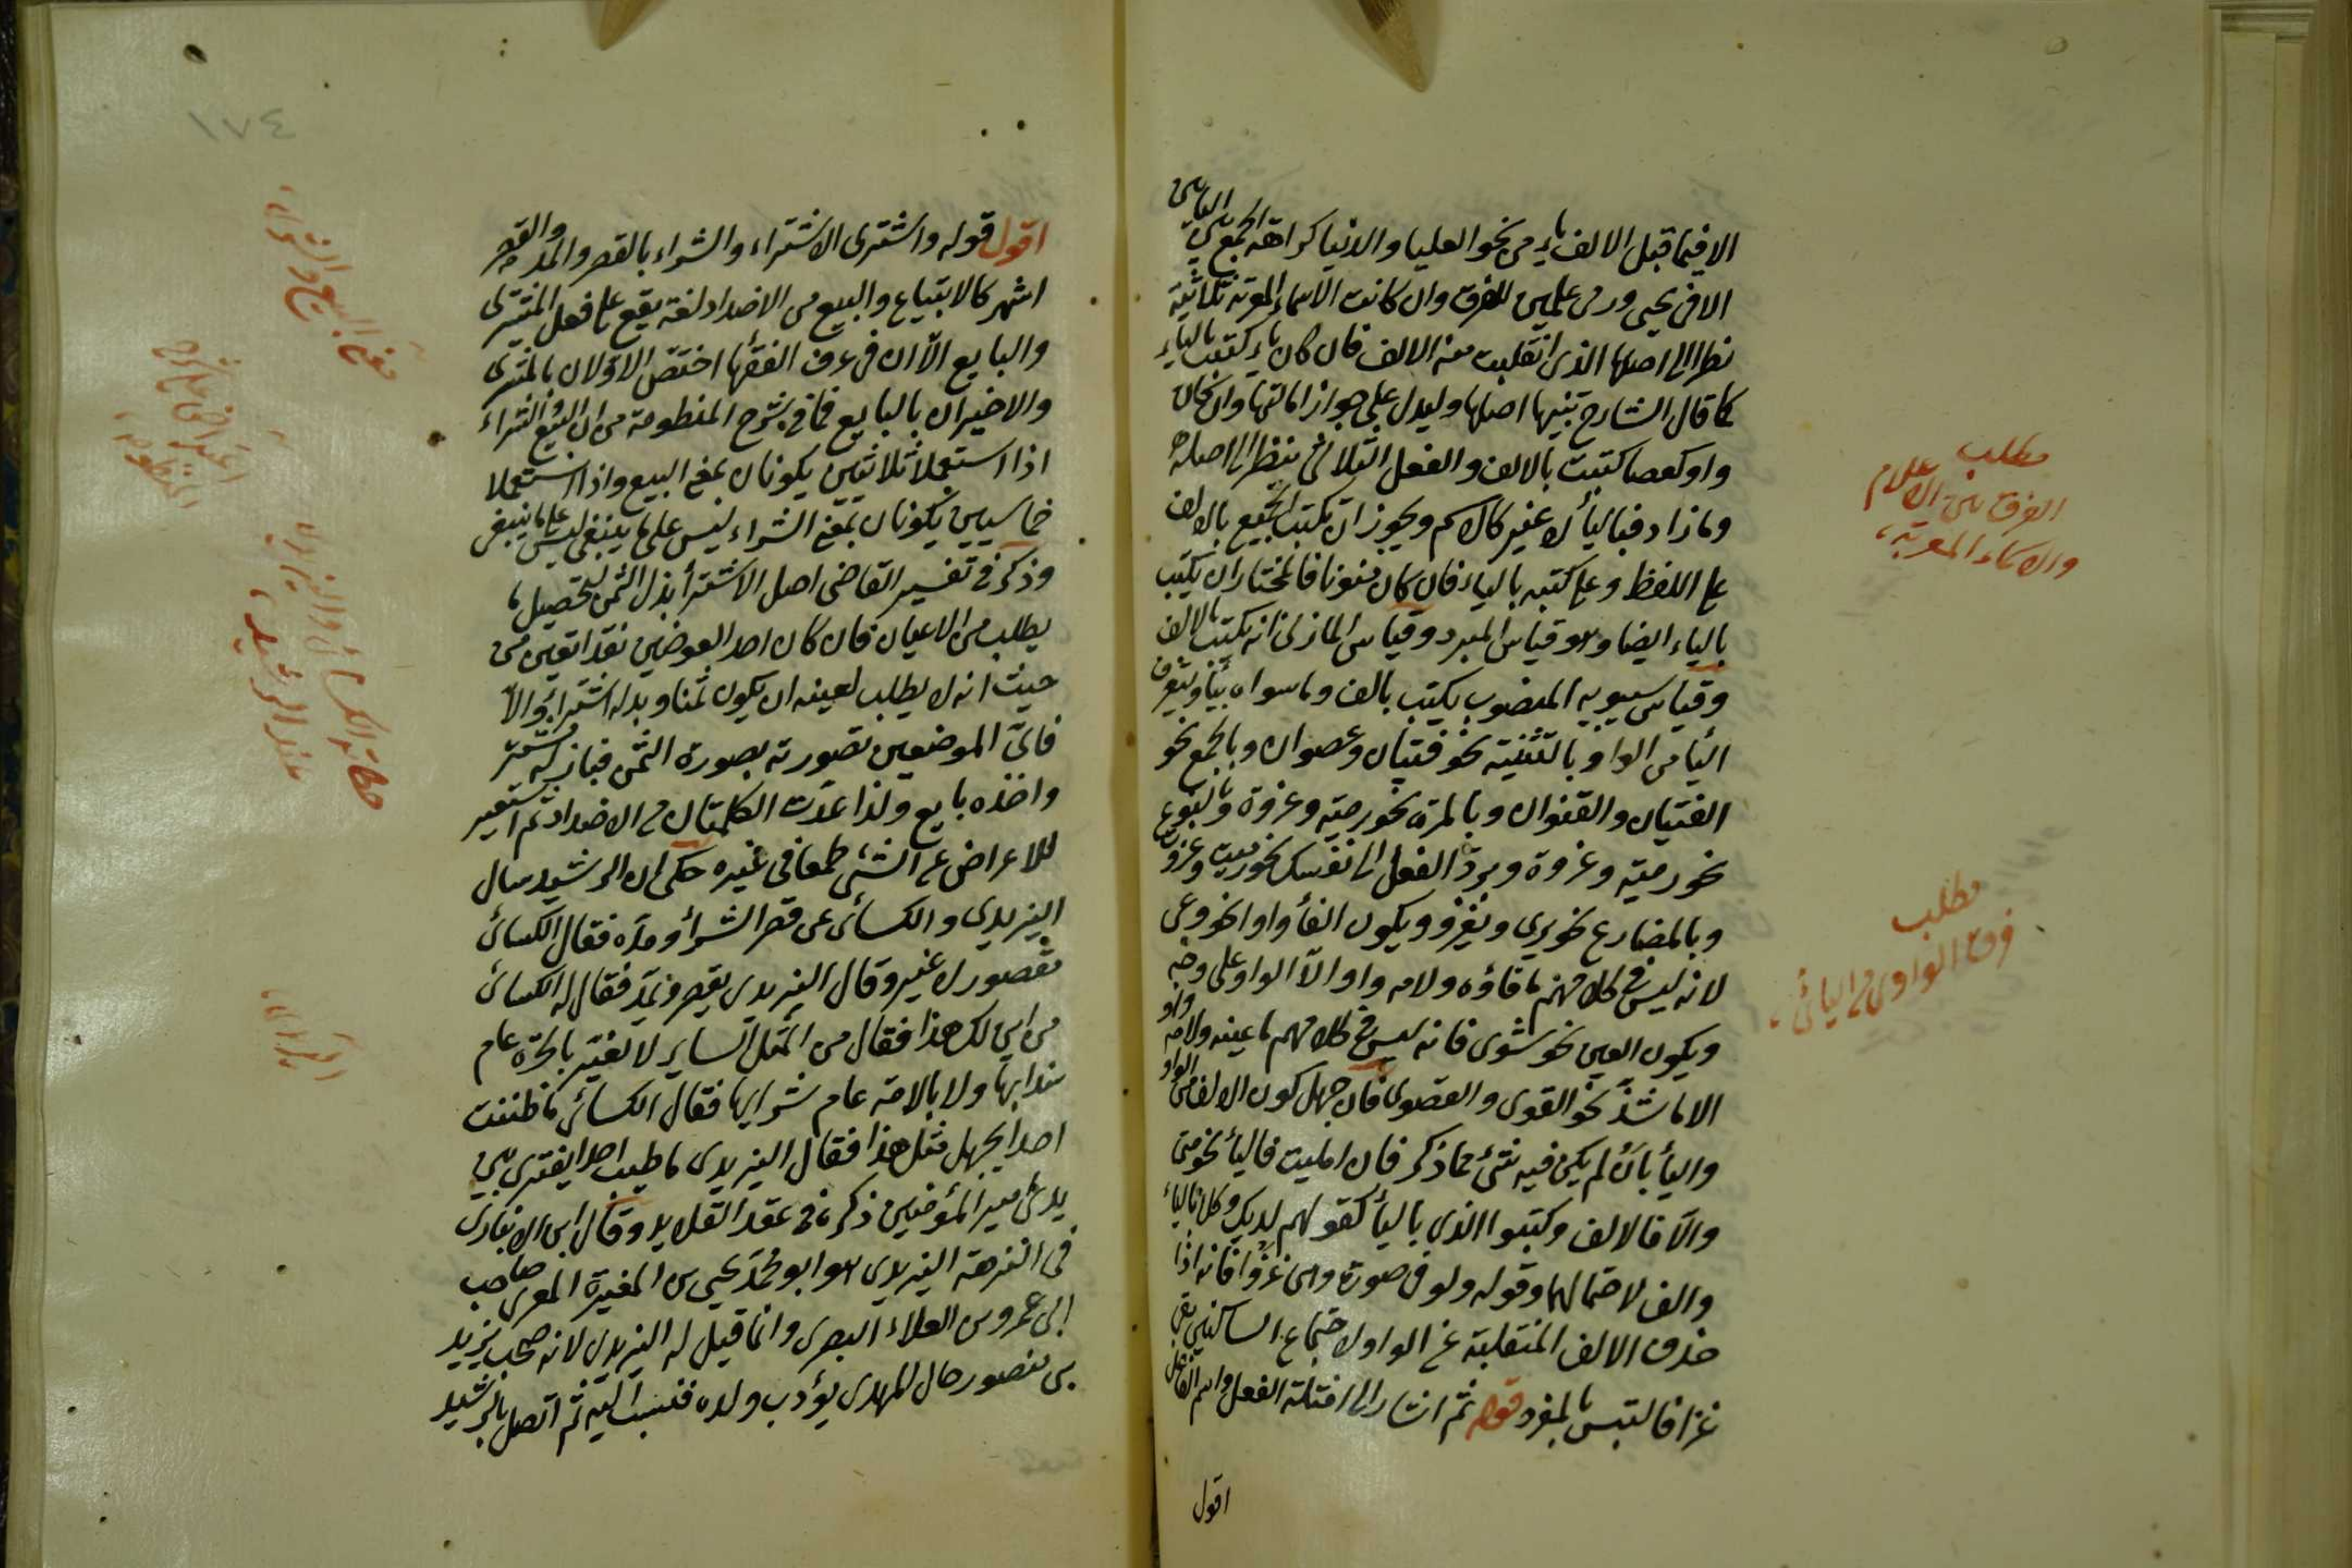 الا فيما قبل الالف ياء من نحو العليا والدنيا كراهة الجمع بين اليائين
الا في يحيى ورمى علمين للفرق وان كانت الاسماء المعربة ثلاثية
نظر الى اصلها الذي انقلبت منه الالف فان كان ياء كتبت بالياء
كما قال الشارح تنبيها اصلها وليدل على جواز امالتها وان كان
واو كعصا كتبت بالالف والفعل الثلاثي ينظر الى اصله
وما زاد فباليأ لا غير كالاسم ويجوز ان يكتب الجميع بالالف
على اللفظ وعلى كتبه بالياء فان كان منونا فالمختار ان يكتب
بالياء ايضا وهو قياس المبرد وقياس المازني انه يكتب بالالف
وقياس سيبويه المنصوب يكتب بالف وما سواه بيأ ويتعرف
اليأ من الواو بالتثنية نحو فتيان وعصوان وبالجمع نحو
الفتيان والقنوان وبالمرة نحو رمية وغزوة وبالنوع
نحو رمية وغزوة وبرد الفعل الى نفسك نحو رميت وغزوت
وبالمضارع نحو يرمي ويغزو وبكون الفأ واوا نحو وعى
لانه ليس في كلامهم ما فاؤه ولامه واو الا الواو على وجه
وبكون العين نحو شوى فانه ليس في كلامهم ما عينه ولامه واو
الا ما شذ نحو القوى والقصوى فان جهل كون الالف من الواو
واليأ بان لم يكن فيه شئ مما ذكر فان امليت فاليأ نحو متى
والا فالالف وكتبوا الذي باليأ كقولهم لديك وكلا بالياء
والف لاحتمالهما وقوله ولو في صورة واى غزوا فانه اذا
حذف الالف المنقلبة عن الواو لاجتماع الساكنين بقى
غزا فالتبس بالمفرد قوله ثم اشار الى امثلة الفعل واسم الفاعل
اقول
مطلب
الفرق بين الاعلام
والاسماء المعربة
مطلب
فرق الواوى من اليائى
١٧٤
اقول قوله واشترى الاشتراء والشراء بالقصر والمد والقصر
اشهر كالابتياع والبيع من الاضداد لغة يقع على فعل المشترى
والبايع الا ان في عرف الفقها اختص الاولان بالمشترى
والاخيران بالبايع فما في شرح المنظومة من ان البيع والشراء
اذا استعملا ثلاثيين يكونان بمعنى البيع واذا استعملا
خماسيين يكونان بمعنى الشراء ليس على ما ينبغي ليس على ما ينبغي
وذكر في تفسير القاضى اصل الاشترأ بذل الثمن لتحصيل ما
يطلب من الاعيان فان كان احد العوضين نقدا تعين من
حيث انه لا يطلب لعينه ان يكون ثمنا وبدله اشتراء والا
فاى الموضعين تصورته بصورة الثمن فباذله مشتر
واخذه بايع ولذا عدت الكلمتان من الاضداد ثم استعير
للاعراض عن الشئ طمعا في غيره حكى ان الرشيد سال
اليزيدي والكسائى عن قصر الشرأ ومده فقال الكسائى
مقصور لا غير وقال اليزيدى يقصر ويمد فقال له الكسائى
من اين لك هذا فقال من المثل الساير لا تغتر بالحرة عام
هدايها ولا بالامة عام شرايها فقال الكسائى ما ظننت
احدا يجهل مثل هذا فقال اليزيدى ما طننت احدا يفترى بين
يدى امير المؤمنين ذكره في عقد القلايد وقال ابن الانبارى
في النزهة اليزيدى هو ابو محمد يحيى بن المغيرة المعرى صاحب
ابى عمرو بن العلاء البصرى وانما قيل له اليزيدى لانه صحب يزيد
بن منصور خال المهدى يؤدب ولده فنسب اليه ثم اتصل بالرشيد
معنى البيع والشراء
حكاية الكسائى واليزيدى
عند الرشيد